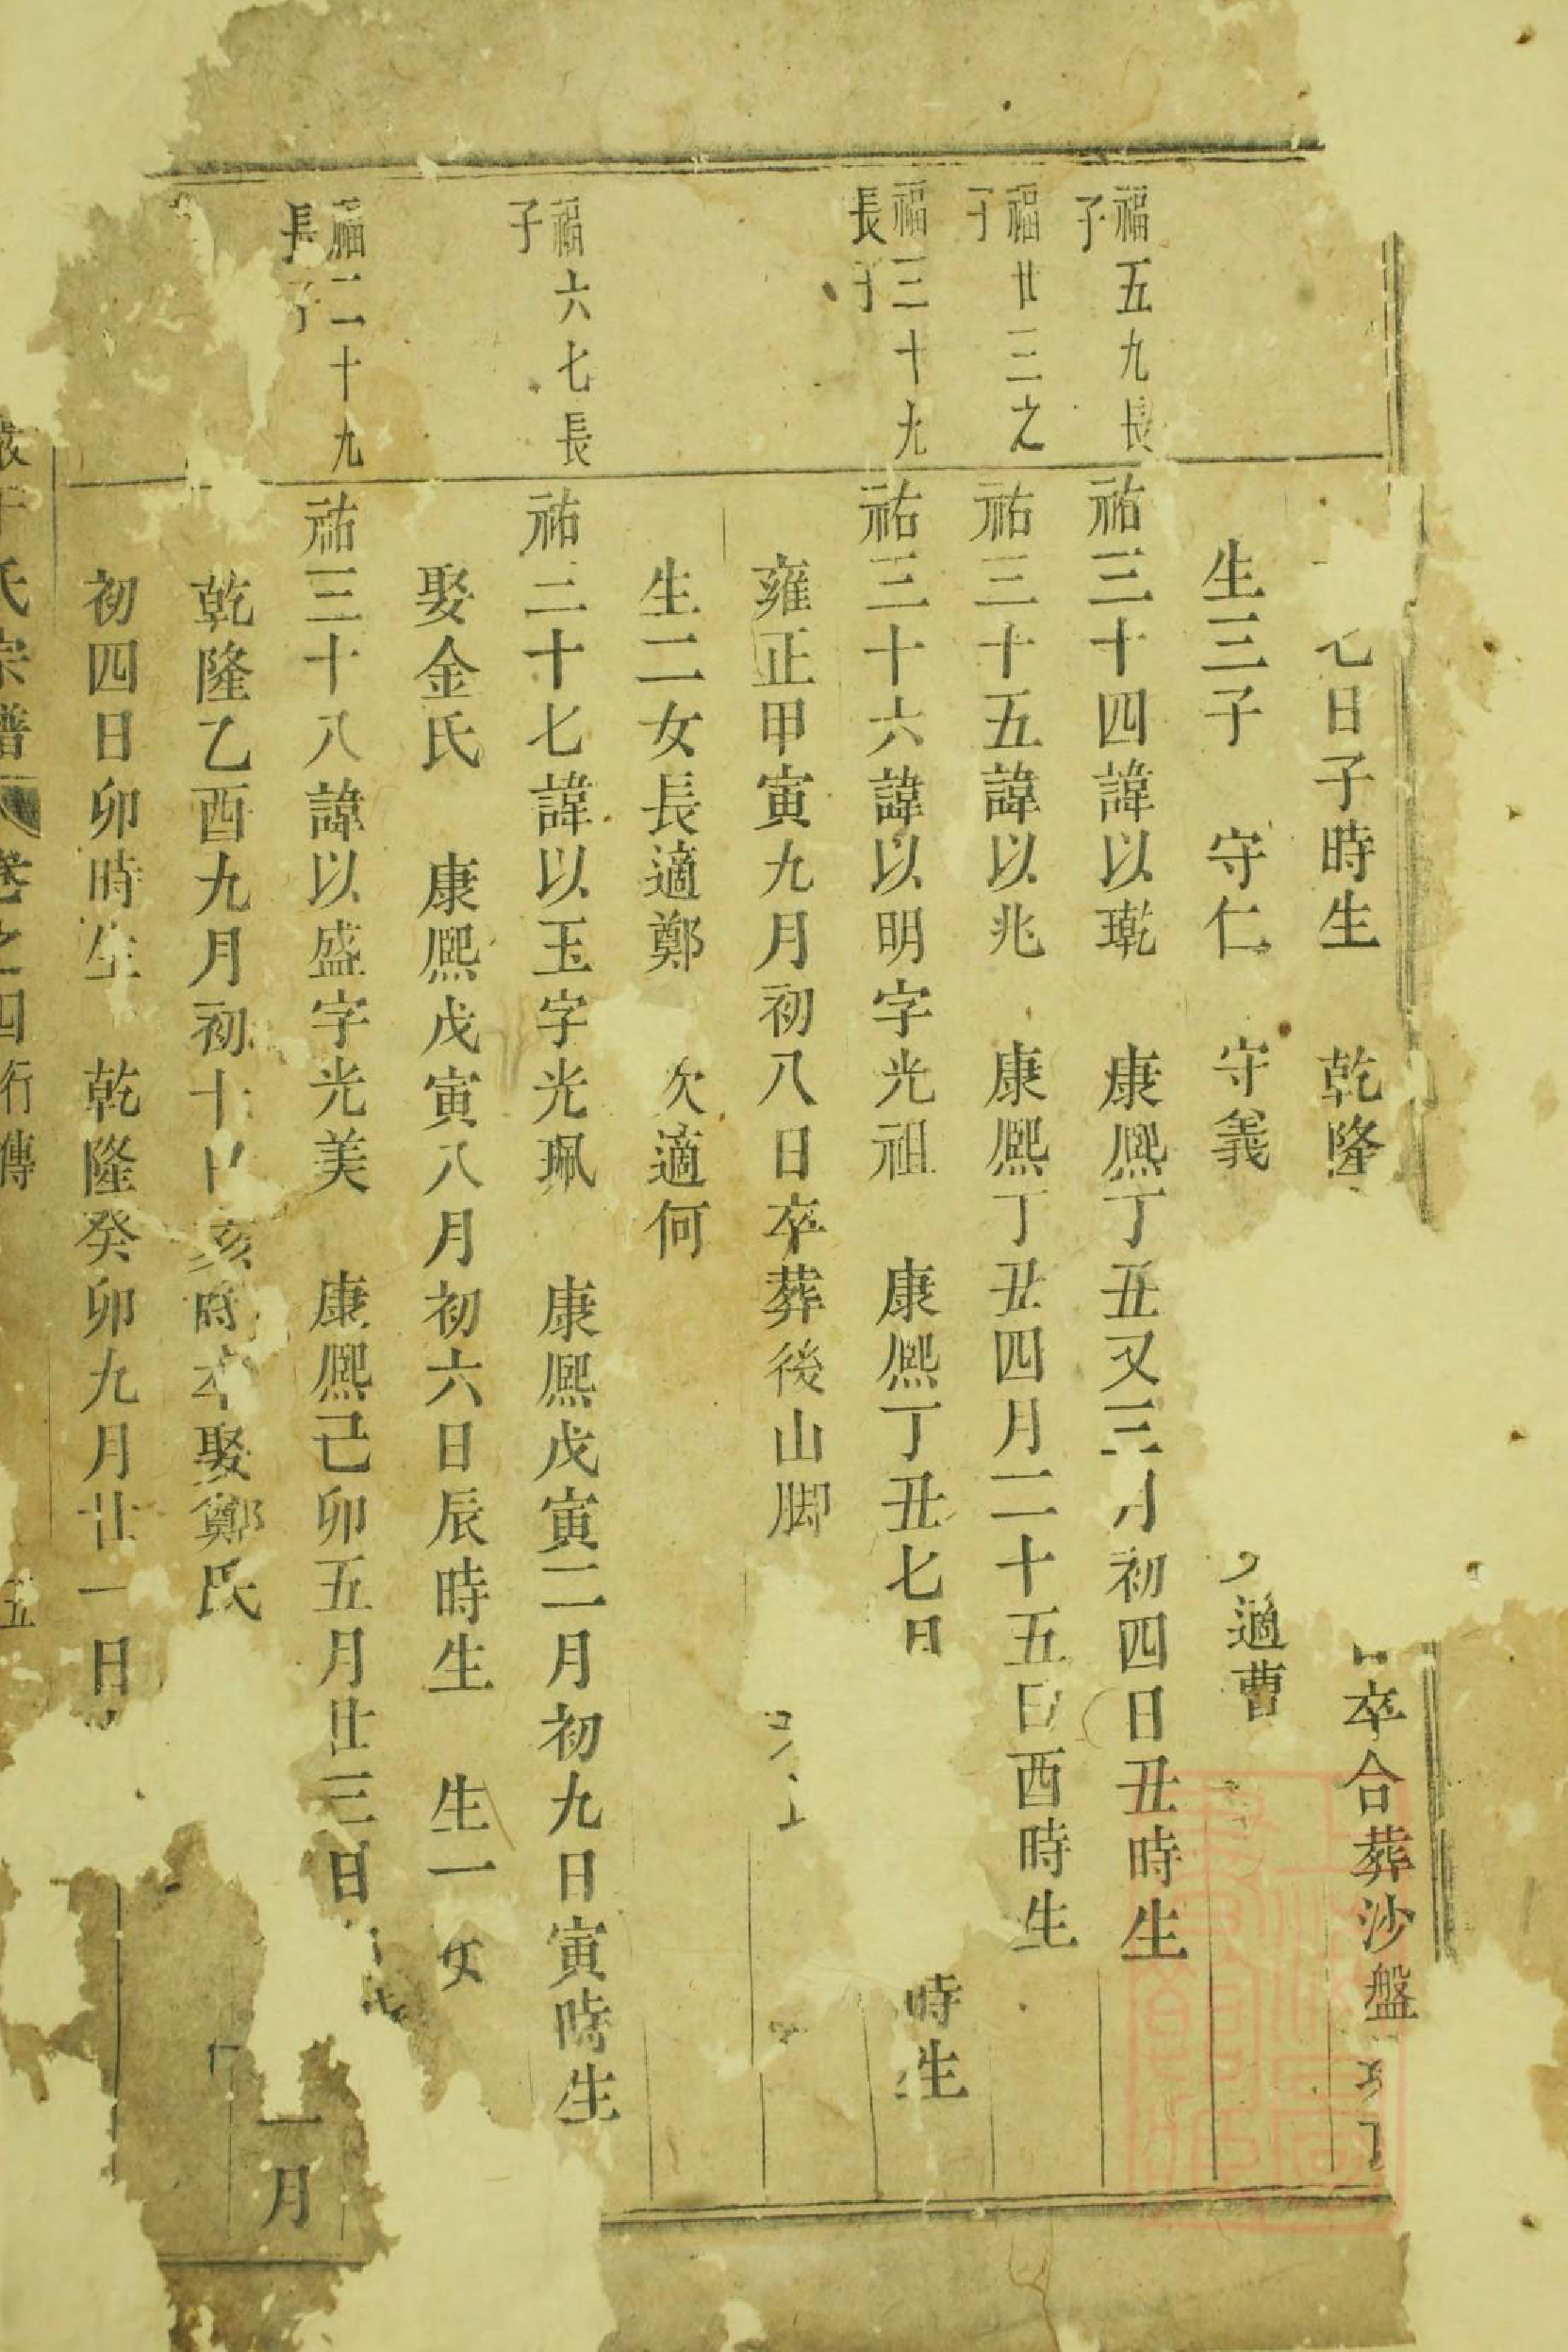 七日子時生 乾隆 日卒合葬沙盤
生三子 守仁 守義 適曹
福五九長子
祐三十四諱以乾 康熙丁丑又三月初四日丑時生
福廿三之子
祐三十五諱以兆 康熙丁丑四月二十五日酉時生
福三十九長子
祐三十六諱以明字光祖 康熙丁丑七日 時生
雍正甲寅九月初八日卒葬後山脚
生二女長適鄭 次適何
福六七長子
祐二十七諱以玉字光珮 康熙戊寅二月初九日寅時生
娶金氏 康熙戊寅八月初六日辰時生 生一女
福二十九長子
祐三十八諱以盛字光美 康熙己卯五月廿三日
乾隆乙酉九月初十日亥時卒娶鄭氏 一月
初四日卯時生 乾隆癸卯九月廿一日
氏宗譜 卷之四行傳 五